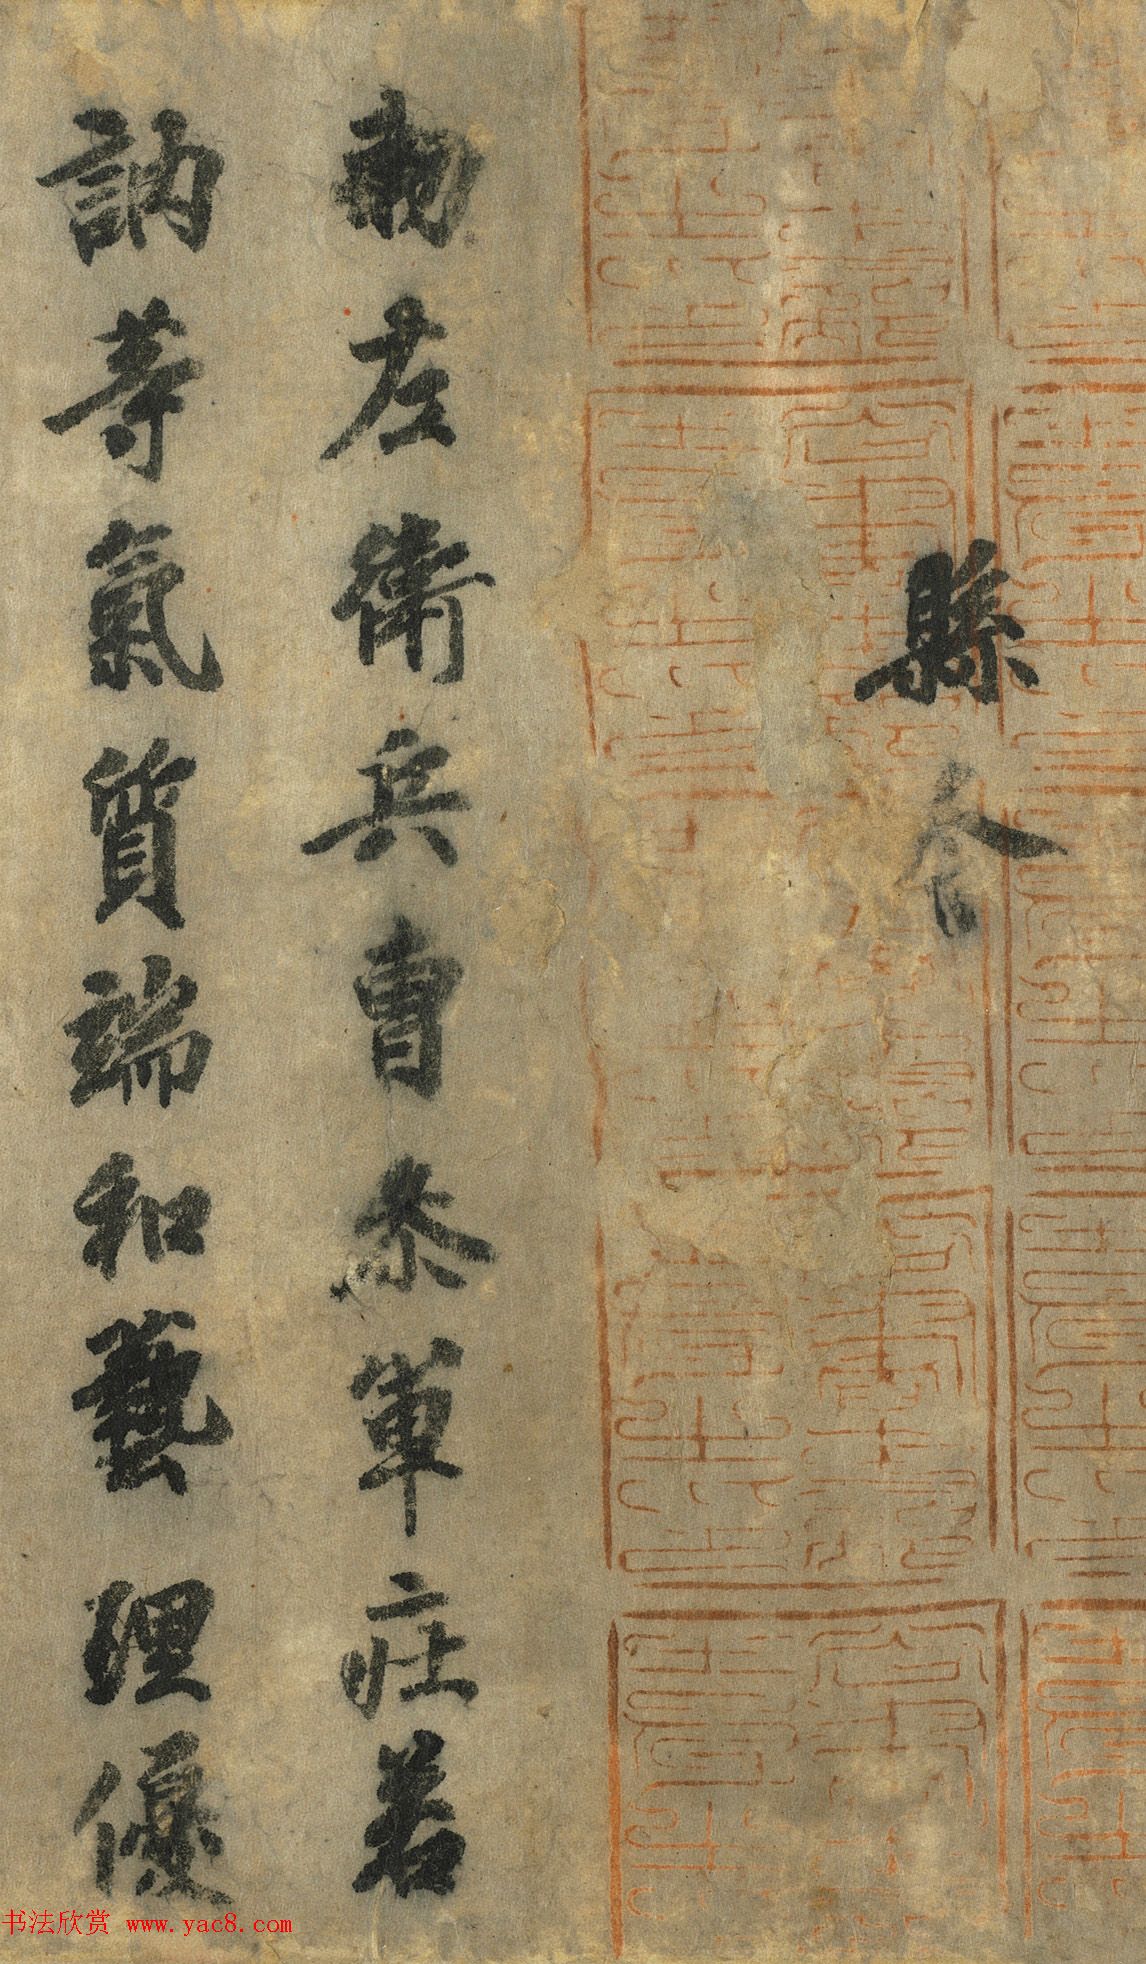 縣令
勑左衛兵曹叅軍莊若
訥等氣質端和藝理優
书法欣赏 www.yac8.com